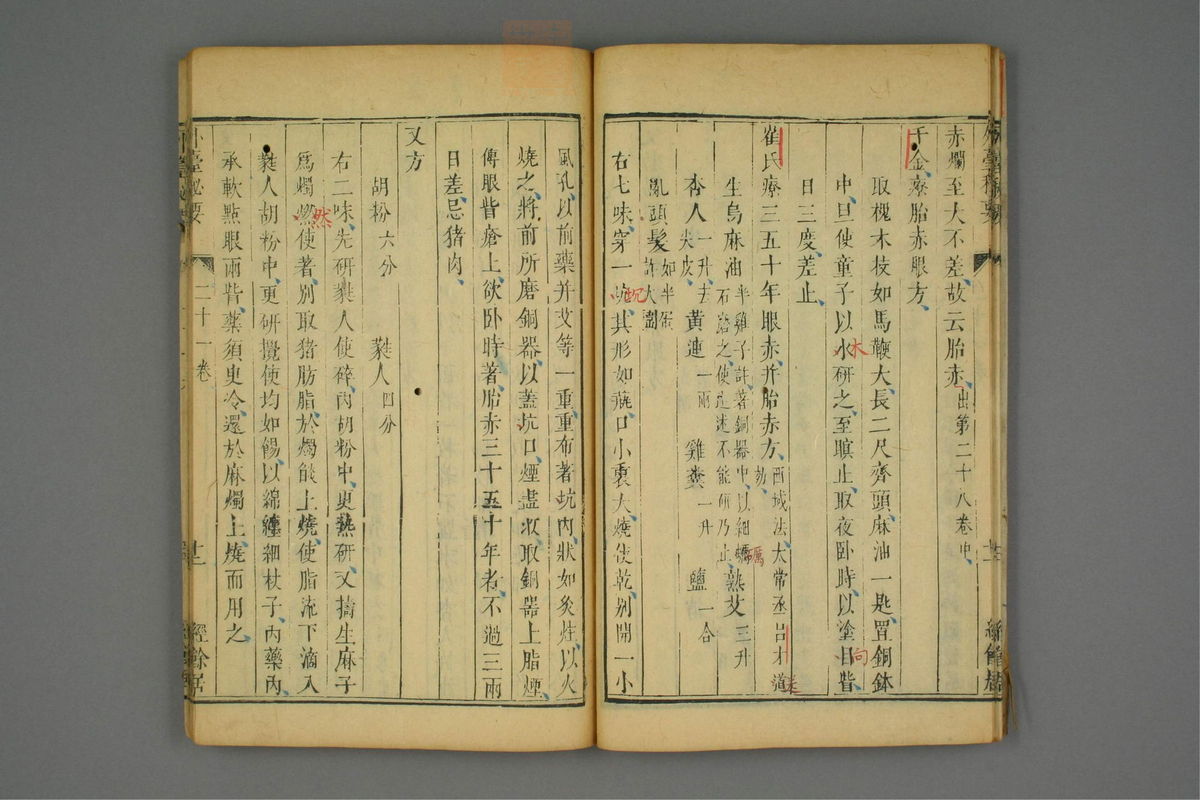 赤爛至大不差故云胎赤出第二十八卷中
千金療胎赤眼方
取槐木枝如馬鞭大長二尺齊頭麻油一匙置銅鉢
中旦使童子以水研之至瞑止取夜卧時以塗目眥
木
向
日三度差止
崔氏療三五十年眼赤并胎赤方西域法太常丞呂才道
劾
生烏麻油半雞子許著銅器中以細蠣
石磨之使述述不能研乃止
熟艾三升
杏人一升去
尖皮
黃連一兩
雞糞一升
鹽一合
亂頭髮如半蛋
許大劃
右七味穿一坑其形如瓶口小裏大燒使乾別開一小
坭
風孔以前藥并艾等一重重布著坑內狀如灸炷以火
燒之將前所磨銅器以蓋坑口煙盡收取銅器上脂煙
傅眼眥瘡上欲卧時著胎赤三十五十年者不過三兩
日差忌猪肉
又方
胡粉六分
蕤人四分
右二味先研蕤人使碎內胡粉中更熟研又擣生麻子
為燭燃使著別取猪肪脂於燭燄上燒使脂流下滴入
然
蕤人胡粉中更研攪使均如餳以綿纏細杖子內藥內
承軟點眼兩眥藥須臾冷還於麻燭上燒而用之
外臺秘要
二十一卷
十二
經餘居